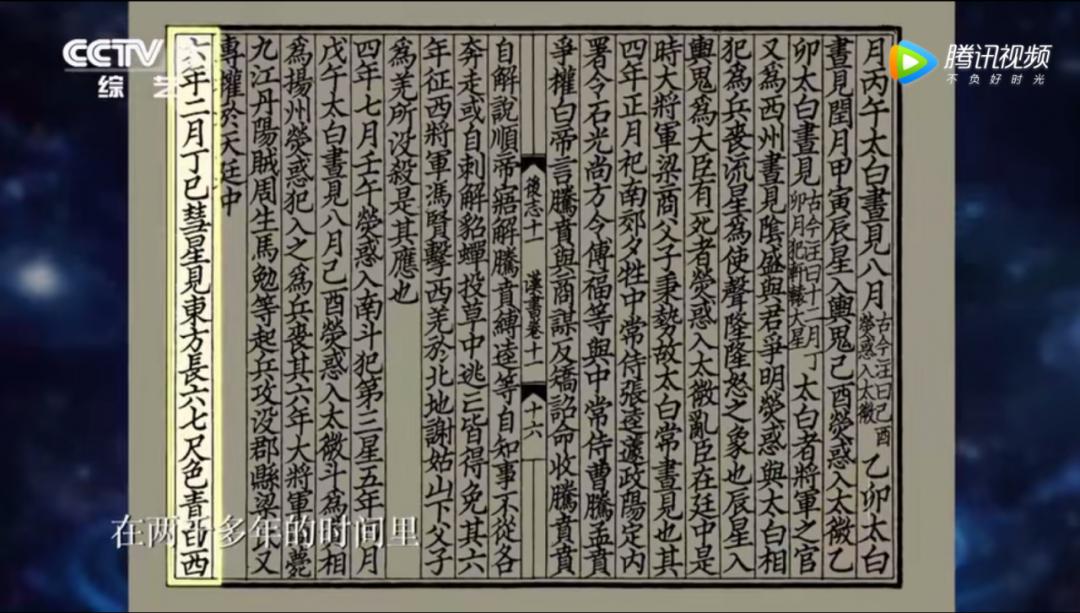 CCTV
综艺
腾讯视频
不负好时光
月丙午太白晝見八月古今注曰己酉熒惑入太微乙卯太白
晝見閏月甲寅辰星入輿鬼己酉熒惑入太微乙
卯太白晝見古今注曰十二月丁卯月犯軒轅大星太白者將軍之官
又為西州晝見陰盛與君爭明熒惑與太白相
犯為兵喪流星為使聲隆隆怒之象也辰星入
輿鬼為大臣有死者熒惑入太微亂臣在廷中是
時大將軍梁商父子秉勢故太白常晝見也其
四年正月祀南郊夕牲中常侍張逵蘧政陽定内
署令石光尚方令傅福等與中常侍曹騰孟賁
爭權白帝言騰賁與商謀反矯詔命收騰賁賁
後志十一 漢書卷十一 十六
自解說順帝寤解騰賁縛逵等自知事不從各
奔走或自刺解貂蟬投草中逃亡皆得免其六
年征西將軍馮賢擊西羌於北地謝姑山下父子
為羌所没殺是其應也
四年七月壬午熒惑入南斗犯第三星五年月
戊午太白晝見八月己酉熒惑入太微斗為相
為揚州熒惑犯入之為兵喪其六年大將軍薨
九江丹陽賊周生馬勉等起兵攻没郡縣梁氏又
專權於天廷中
六年二月丁巳彗星見東方長六七尺色青白西
在两千多年的时间里